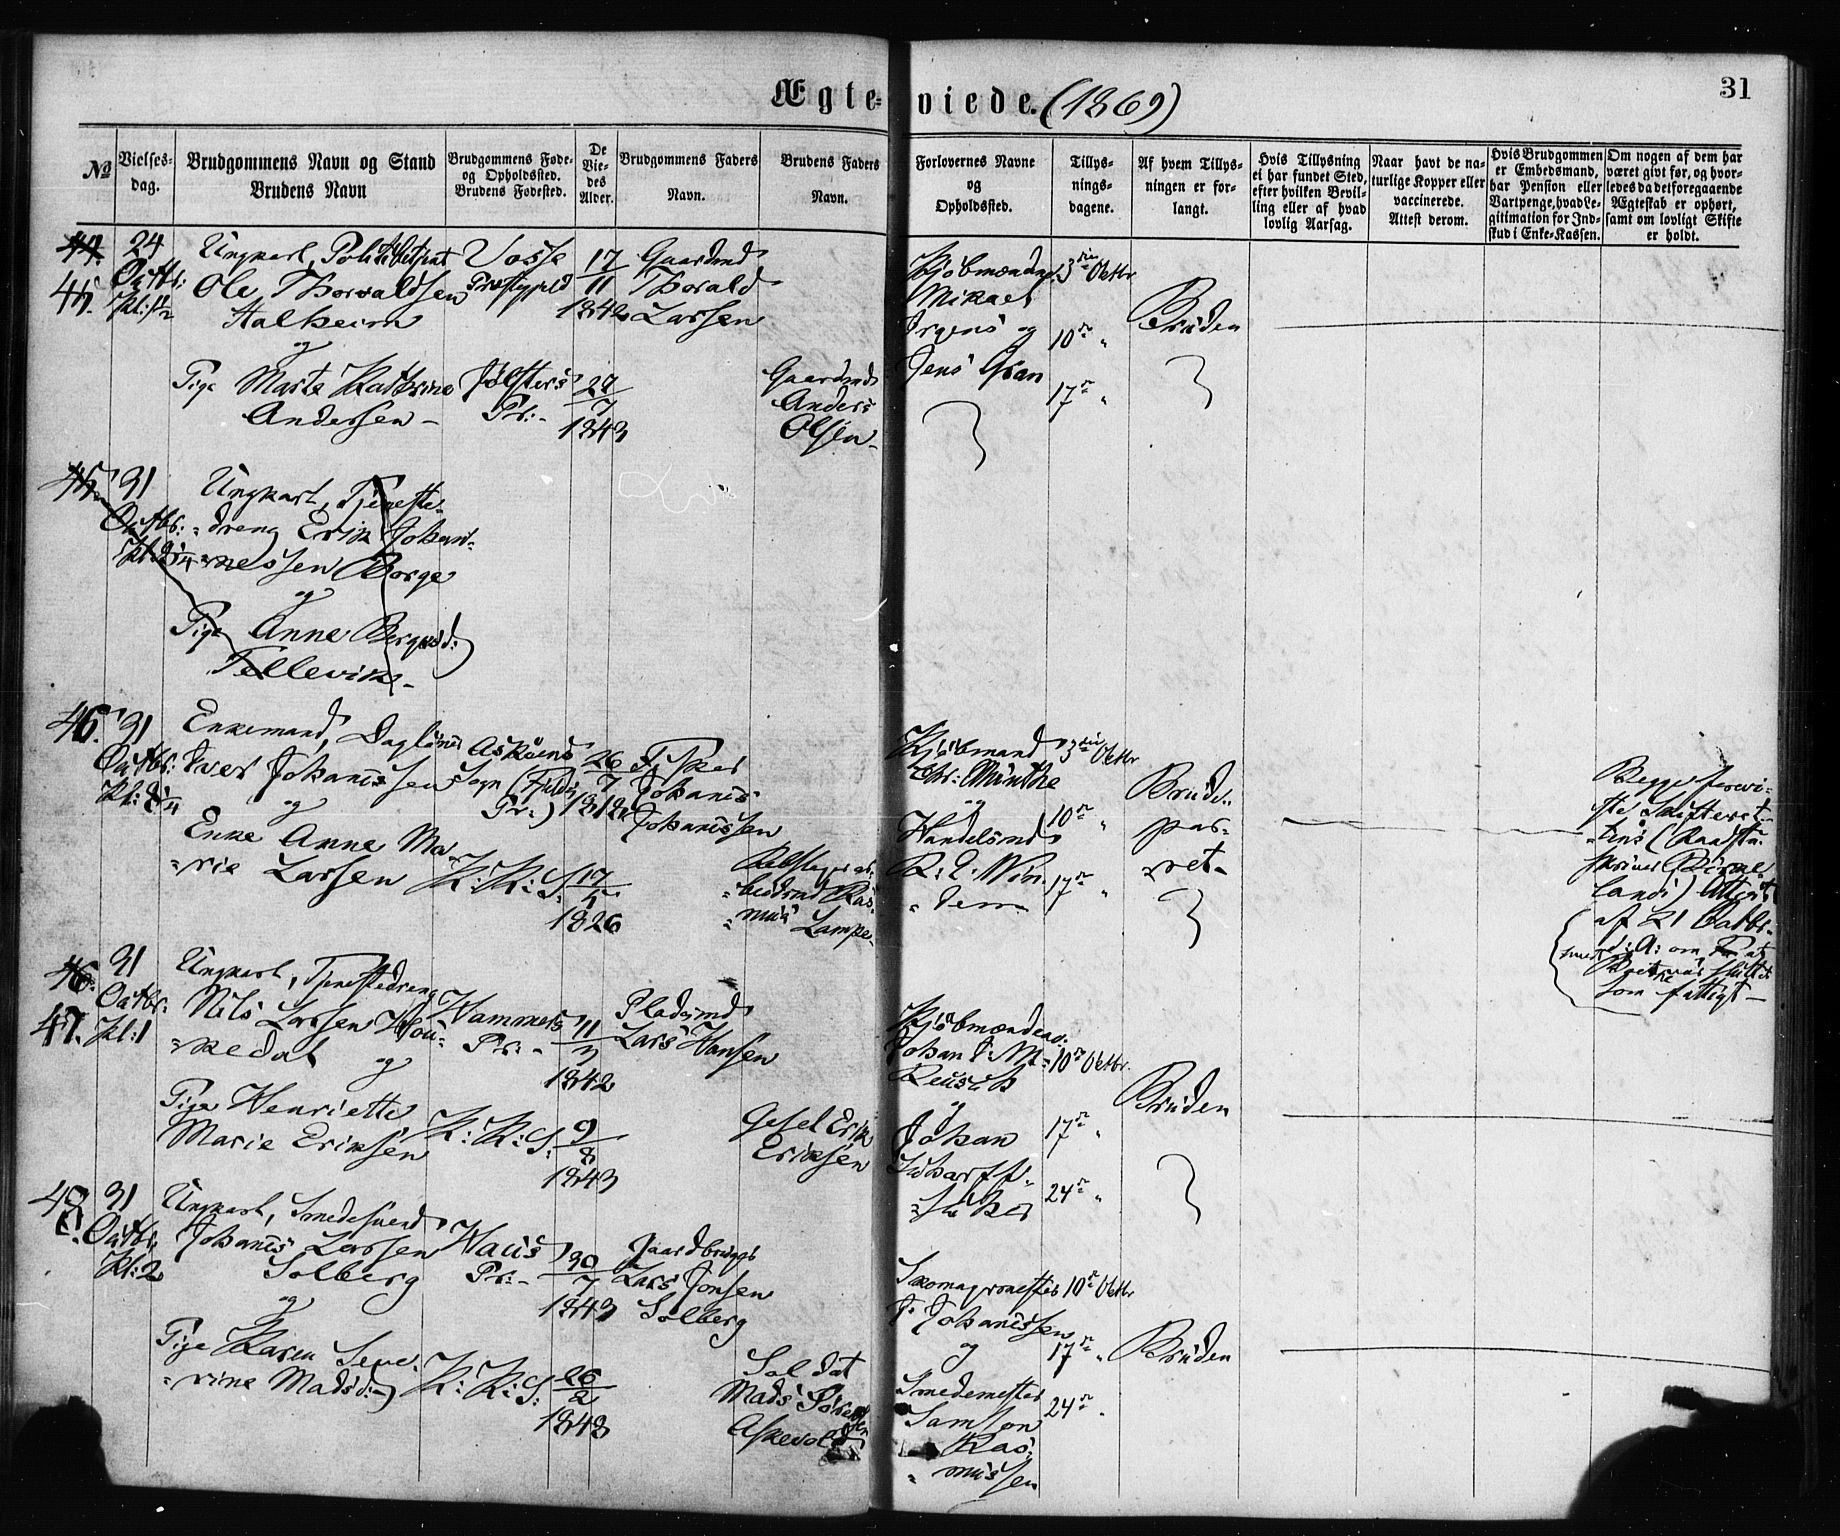 Ægte-viede. (1869)
31
No
Vielses-
dag.
Brudgommens Navn og Stand
Brudens Navn
Brudgommens Føde-
og Opholdssted.
Brudens Fødested.
De
Vie-
des
Alder.
Brudgommens Faders
Navn.
Brudens Faders
Navn.
Forlovernes Navne
og
Opholdssted.
Tillys-
nings-
dagene.
Af hvem Tillys-
ningen er for-
langt.
Hvis Tillysning
ei har fundet Sted,
efter hvilken Bevil-
ling eller af hvad
lovlig Aarsag.
Naar havt de na-
turlige Kopper eller
vaccinerede.
Attest derom.
Hvis Brudgommen
er Embedsmand,
har Pension eller
Vartpenge, hvad Le-
gitimation for Ind-
skud i Enke-Kassen.
Om nogen af dem har
været givt før, og hvor-
ledes da det foregaaende
Ægteskab er ophørt,
samt om lovligt Skifte
er holdt.
44.
45.
24
Octbr:
Ungkarl, Politibetjent
Ole Thorvaldsen
Aalheim
og
Pige Marte Kathrine
Andersen -
Vosse
Præstegjeld
Jølsters
Pr: -
17
11
1842
27
7
1843
Gaardmd
Thorald
Larssen
Gaardmd
Anders
Olsen -
Kjøbmændene
Mikael
Irgens og
Jens Gran
3die Octbr
10de "
17de "
Bruden
45.
31
Octbr:
Ungkarl, Tjeneste-
dreng Erik Johan-
nessen Borge
og
Pige Anne Bergesd:
Tellevik -
46.
31
Octbr:
Enkemand, Daglønner
Iver Johannssen
og
Enke Anne Ma-
rie Larsen
Askøens
Sogn (Fjelds
Pr:)
K: K: S:
26
7
1818
17
1826
Fisker
Johanns
Johannssen
Rebslagerar-
beidsmd Ras-
mus Lampe -
Kjøbmand
Chr: Münthe
og
Handelsmd
3die Octbr
10de "
17de "
Brude-
par-
ret -
Begge forevi-
ste Skifteret-
tens
Attest
af 21 Octbr.
som fattigt -
46.
47.
31
Octbr.
Kl: 1
Ungkarl, Tjenestedreng
Nils Larssen Hou-
kedal og
Pige Henriette
Marie Eriksen
Hammers
Pr: -
K: K: S:
11
3
1842
9
8
1843
Pladsmd
Lars Hansen
Gesel Erik
Eriksen
Kjøbmændene
Johan F: M:
Reusch
og
Johan
Scharff-
scher
10de Octbr.
17de "
24de "
Bruden
48.
31
Octbr.
Kl: 2
Ungkarl, Smedesvend
Johannes Larssen
Solberg
og
Pige Karen Seve-
rine Madsd: -
Haus
Pr: -
K: K: S:
30
7
1843
26
2
1843
Gaardbruger
Lars Jonsen
Solberg
Soldat
Mads Sørensen
Askevold
Skomagermester
F: Johannssen
og
Smedemester
Samson
Ras-
mussen
10de Octbr
17de "
24de "
Bruden